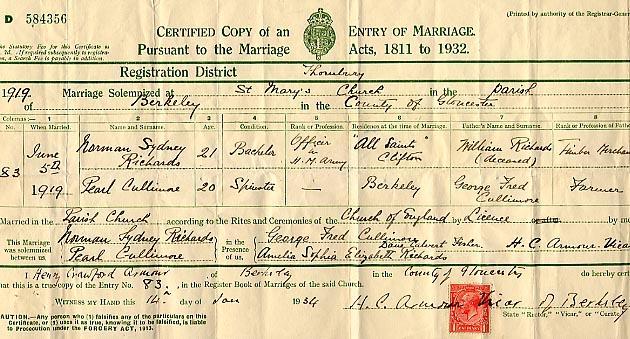 D 584356
(Printed by authority of the Registrar-Gener
CERTIFIED COPY of an ENTRY OF MARRIAGE.
The Statutory Fee for this Certificate is
If required subsequently to registra-
tion, a Search Fee is payable in addition.
Pursuant to the Marriage Acts, 1811 to 1932.
Registration District Thornbury
1919. Marriage Solemnized at St Mary's Church in the Parish
of Berkeley in the County of Gloucester
Columns:— 1 2 3 4 5 6 7 8
No. When Married. Name and Surname. Age. Condition. Rank or Profession. Residence at the time of Marriage. Father's Name and Surname. Rank or Profession of Father
83 June 5th 1919 Norman Sydney Richards 21 Bachelor Officer in H.M. Army "All Saints" Clifton William Richards (deceased) Merchan
Pearl Cullimore 20 Spinster — Berkeley George Fred Cullimore Farmer
Married in the Parish Church according to the Rites and Ceremonies of the Church of England by Licence or after by me
This Marriage was solemnized between us Norman Sydney Richards Pearl Cullimore in the Presence of us George Fred Cullimore Amelia Sophia Elizabeth Richards H. C. Armour. Vicar
I Henry Crawford Armour of Berkeley in the County of Gloucester do hereby certi
that this is a true copy of the Entry No. 83, in the Register Book of Marriages of the said Church.
WITNESS MY HAND this 16. day of Jan 1934 H. C. Armour Vicar of Berkeley
CAUTION.—Any person who (1) falsifies any of the particulars on this
Certificate, or (2) uses it as true, knowing it to be falsified, is liable
to Prosecution under the FORGERY ACT, 1913.
State "Rector," "Vicar," or "Curate,"